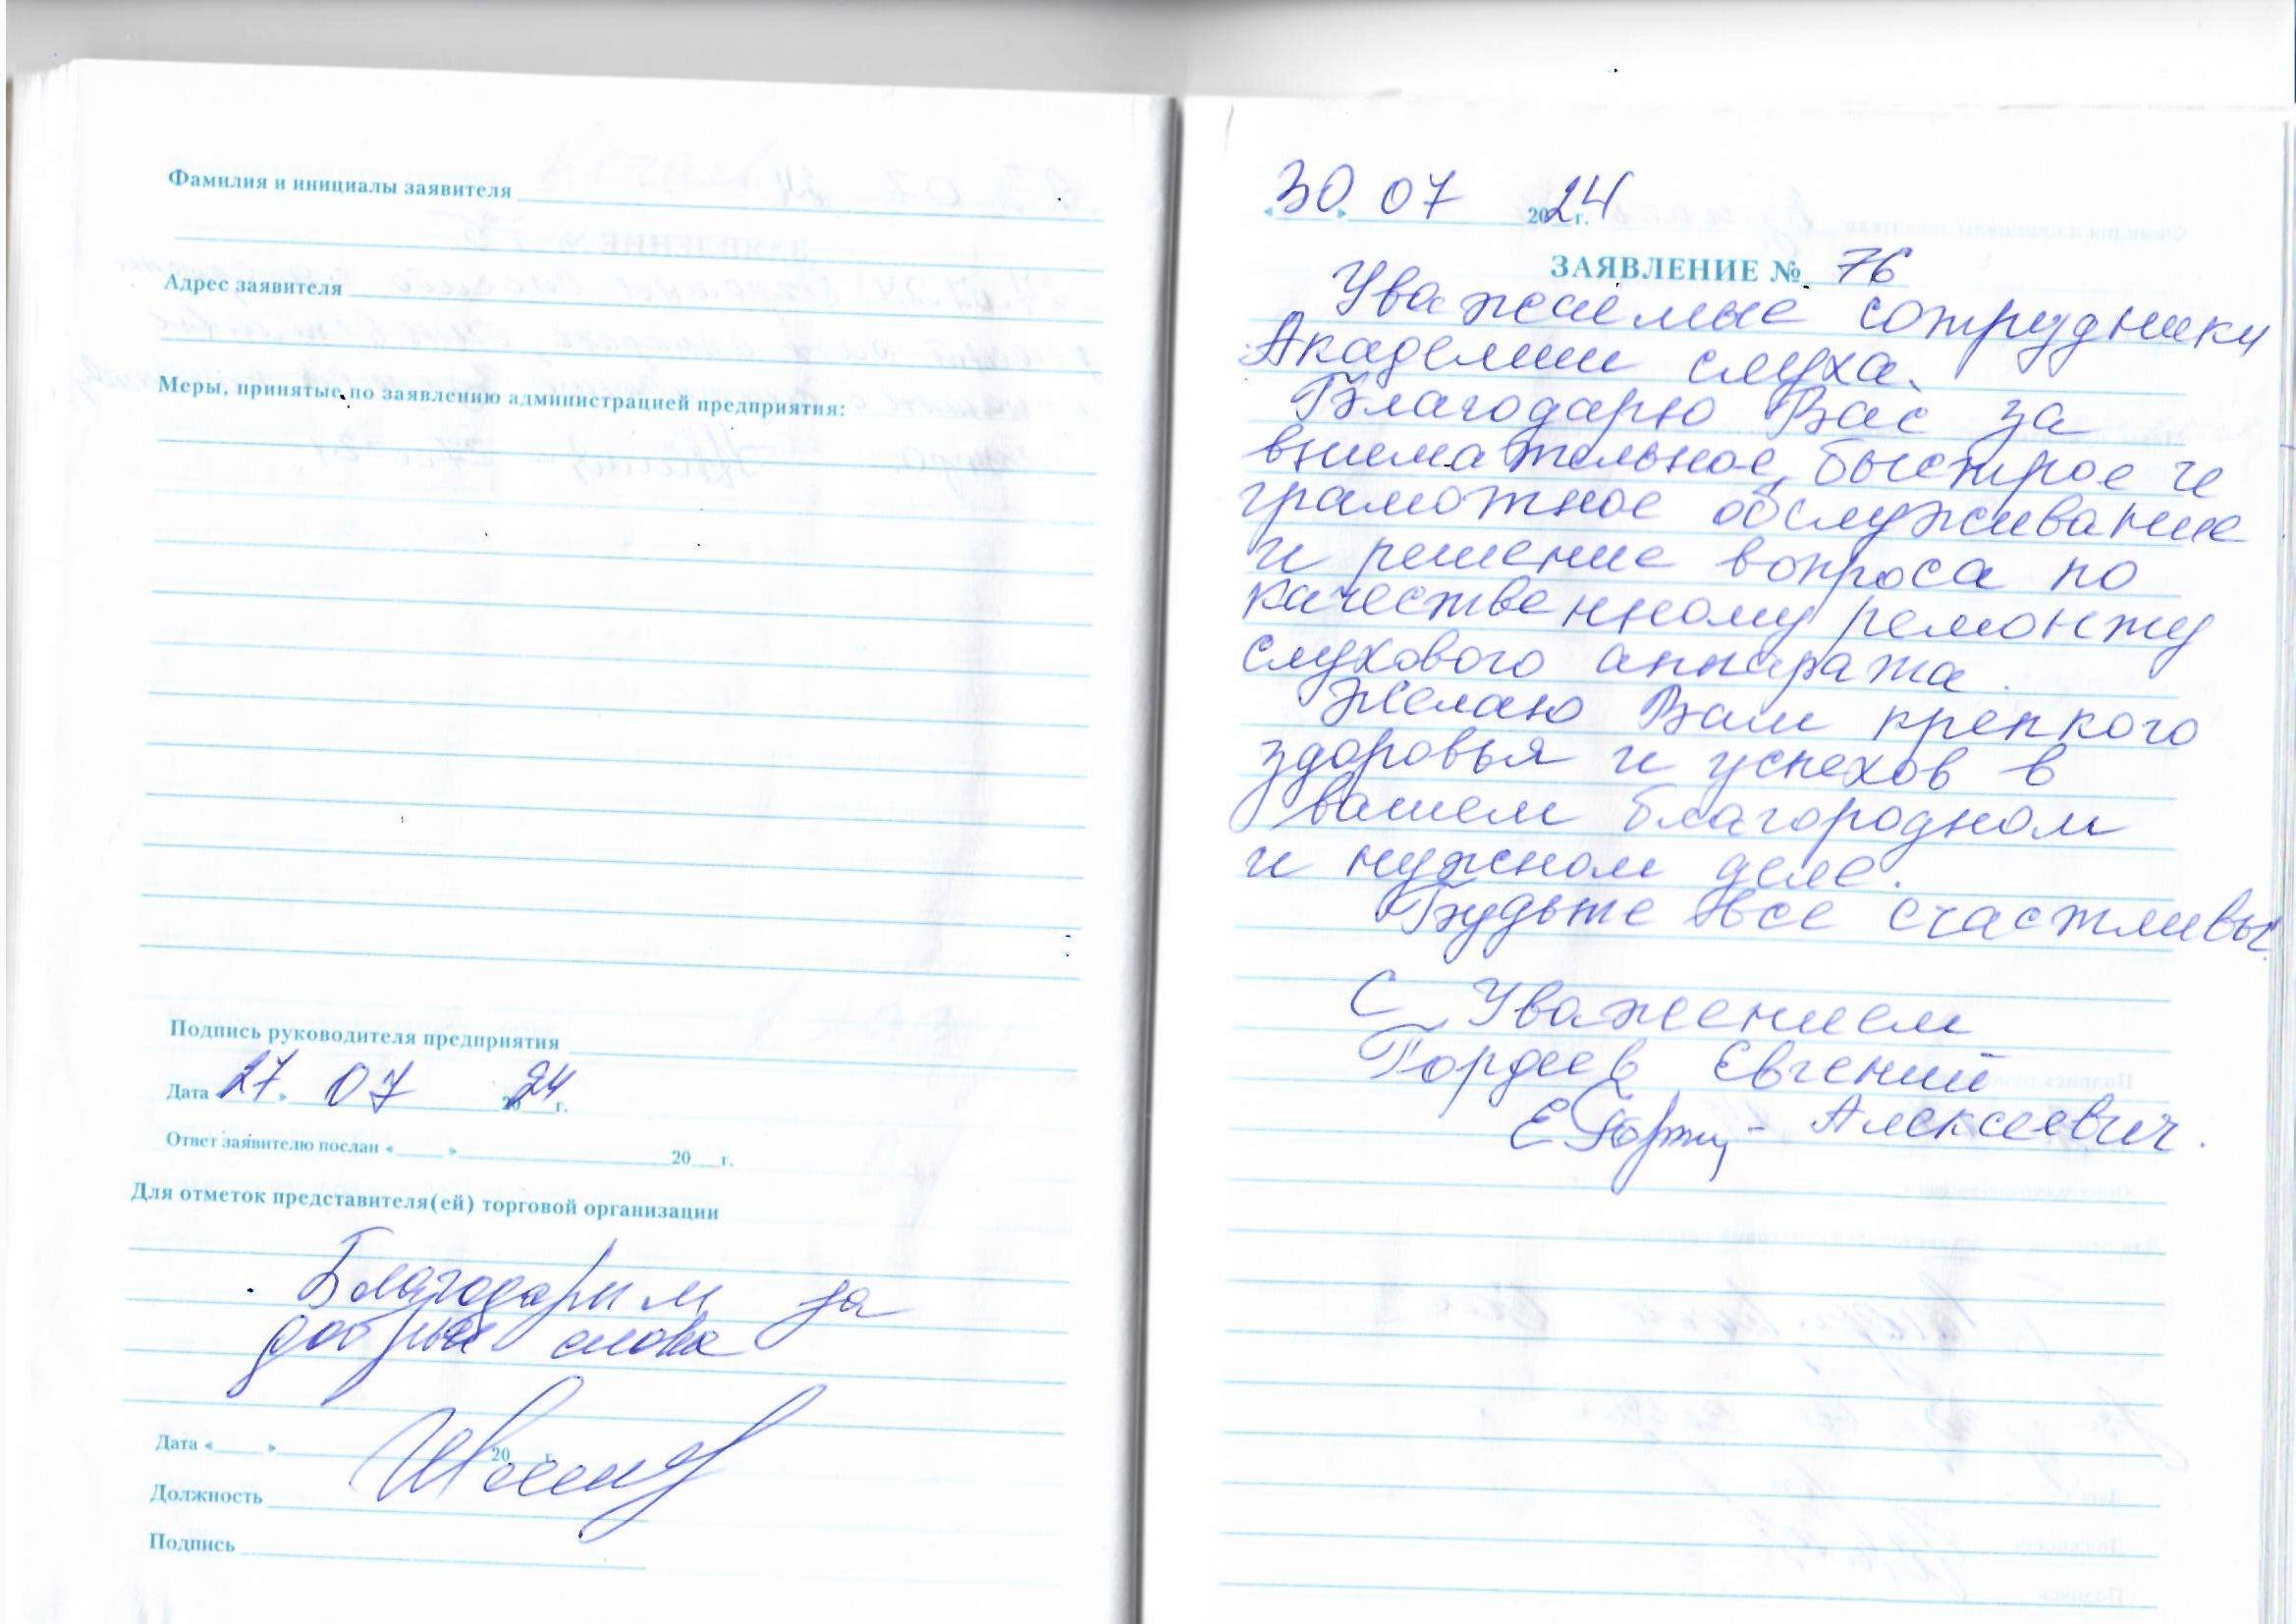 Фамилия и инициалы заявителя
Адрес заявителя
Меры, принятые по заявлению администрацией предприятия:
Подпись руководителя предприятия
Дата 27 » 07 2024 г.
Ответ заявителю послан « » 20 г.
Для отметок представителя(ей) торговой организации
Благодарим за
добрые слова
Дата « » 20 г.
Должность
Подпись
« 30 » 07 2024 г.
ЗАЯВЛЕНИЕ № 76
Уважаемые сотрудники
Академии слуха.
Благодарю Вас за
внимательное, быстрое и
грамотное обслуживание
и решение вопроса по
качественному ремонту
слухового аппарата.
Желаю Вам крепкого
здоровья и успехов в
вашем благородном
и нужном деле.
Будьте все счастливы.
С Уважением
Гордеев Евгений
Алексеевич.